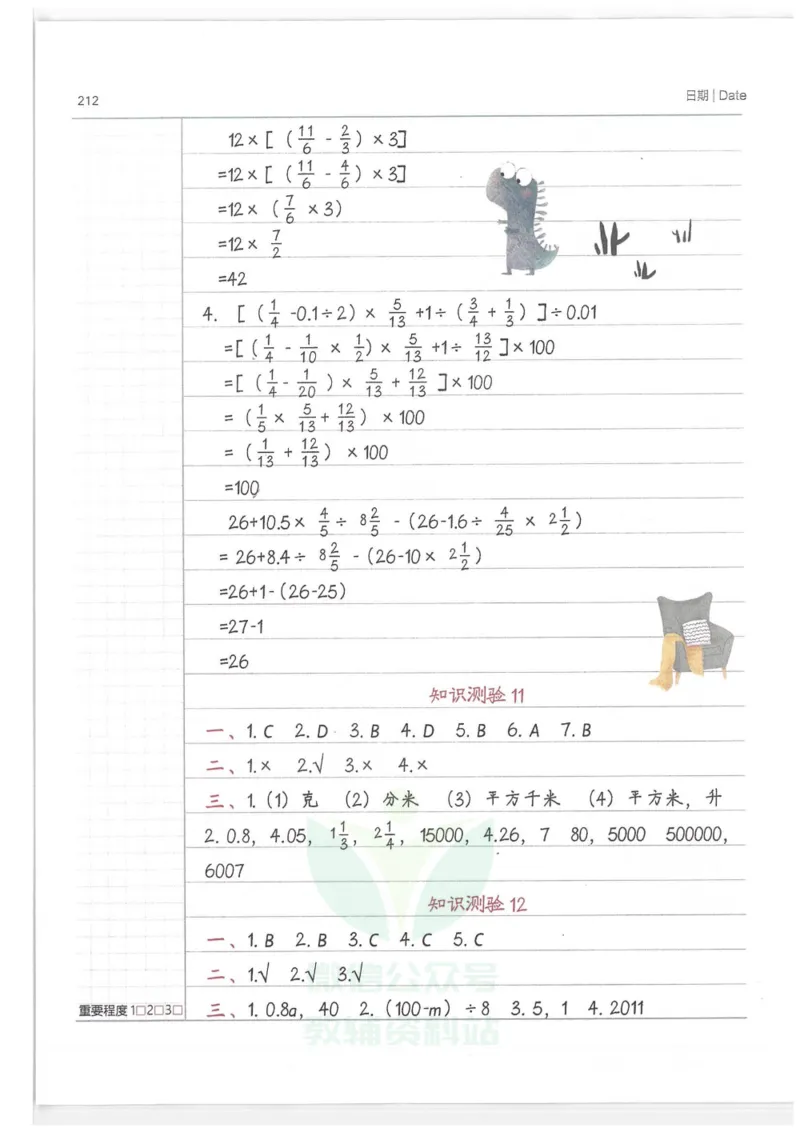 212
日期 | Date
12×[（11/6 - 2/3）×3]
=12×[（11/6 - 4/6）×3]
=12×（7/6 ×3）
=12× 7/2
=42
4. [（1/4 -0.1÷2）× 5/13 +1÷（3/4 + 1/3）]÷0.01
=[（1/4 - 1/10 × 1/2）× 5/13 +1÷ 13/12 ]×100
=[（1/4 - 1/20 ）× 5/13 + 12/13 ]×100
=（1/5 × 5/13 + 12/13）×100
=（1/13 + 12/13）×100
=100
26+10.5× 4/5 ÷ 8 2/5 -（26-1.6÷ 4/25 × 2 1/2）
= 26+8.4÷ 8 2/5 -（26-10× 2 1/2）
=26+1-（26-25）
=27-1
=26
知识测验11
一、1.C 2.D 3.B 4.D 5.B 6.A 7.B
二、1.× 2.√ 3.× 4.×
三、1.（1）克 （2）分米 （3）平方千米 （4）平方米，升
2. 0.8，4.05，1 1/3，2 1/4，15000，4.26，7 80，5000 500000，
6007
知识测验12
一、1.B 2.B 3.C 4.C 5.C
二、1.√ 2.√ 3.√
三、1. 0.8a，40 2.（100-m）÷8 3. 5，1 4. 2011
重要程度 1□2□3□
微信公众号
教辅资料站